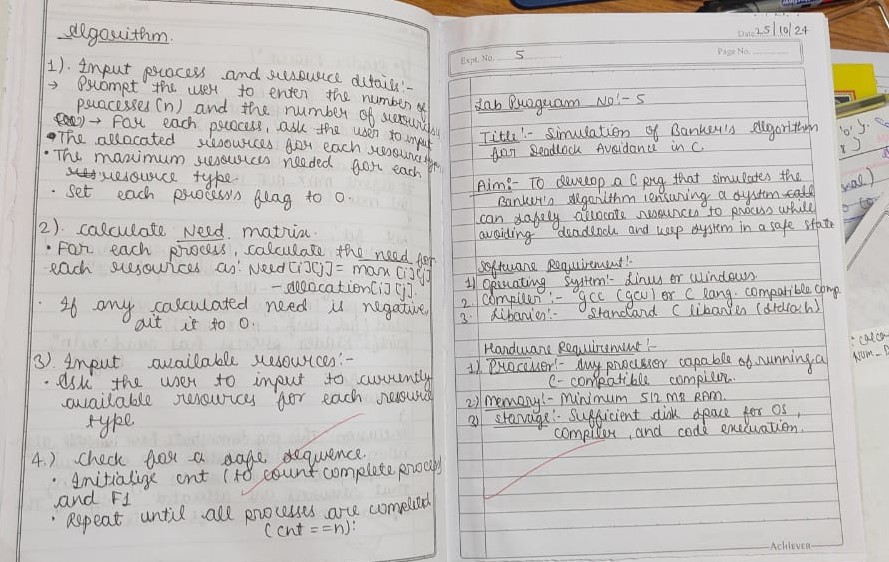 Algorithm.
1). Input process and resource details:-
→ Prompt the user to enter the number of
processes (n) and the number of resources
→ For each process, ask the user to input
• The allocated resources for each resource type
• The maximum resources needed for each
resource type.
• Set each process's flag to 0.
2). calculate Need matrix.
• For each process, calculate the need for
each resources as: Need[i][j] = max[i][j]
- Allocation[i][j].
• If any calculated need is negative,
it to 0.
3). Input available resources:-
• Ask the user to input to currently
available resources for each resource
type
4.) Check for a safe sequence.
• Initialize cnt (to count complete process
and F1
• Repeat until all processes are completed
(cnt == n):
Date 25/10/24
Expt. No. 5
Page No.
Lab Program No:- 5
Title:- Simulation of Banker's Algorithm
for Deadlock Avoidance in C.
Aim:- To develop a C prg that simulates the
Banker's Algorithm, ensuring a system
can safely allocate resources to process while
avoiding deadlock and keep system in a safe state
Software Requirement:-
1) Operating System:- Linux or Windows.
2. Compiler:- gcc (gcu) or C lang. compatible comp.
3. Libaries:- Standard C libaries (
Hardware Requirement:-
1) Processor:- Any processor capable of running a
C- compatible compiler.
2) Memory:- Minimum 512 MB RAM.
3) Storage:- Sufficient disk space for OS,
compiler, and code execuation.
Achiever